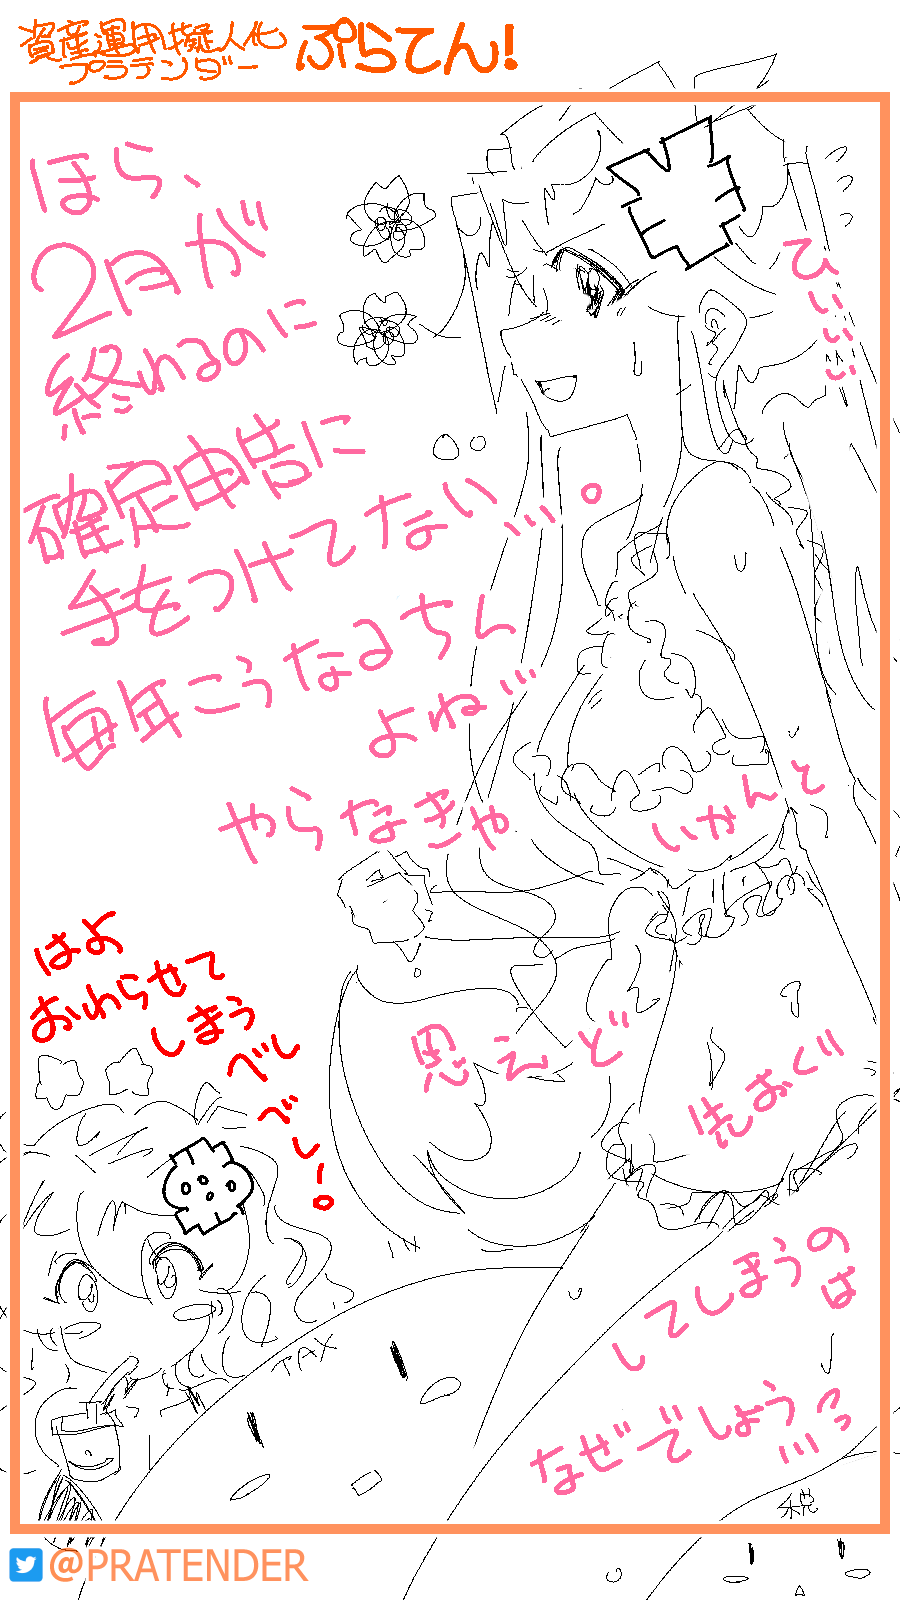 資産運用擬人化
プラテンダー
ぷらてん!
ほら、
2月が
終わるのに
確定申告に
手をつけてない…。
毎年こうなるちん
よね…
やらなきゃ
いかんと
思えど
先おくり
してしまうのは
なぜでしょうっ…
ひぃぃぃ
はよ
おわらせて
しまう
べし
べし。
TAX
税
@PRATENDER